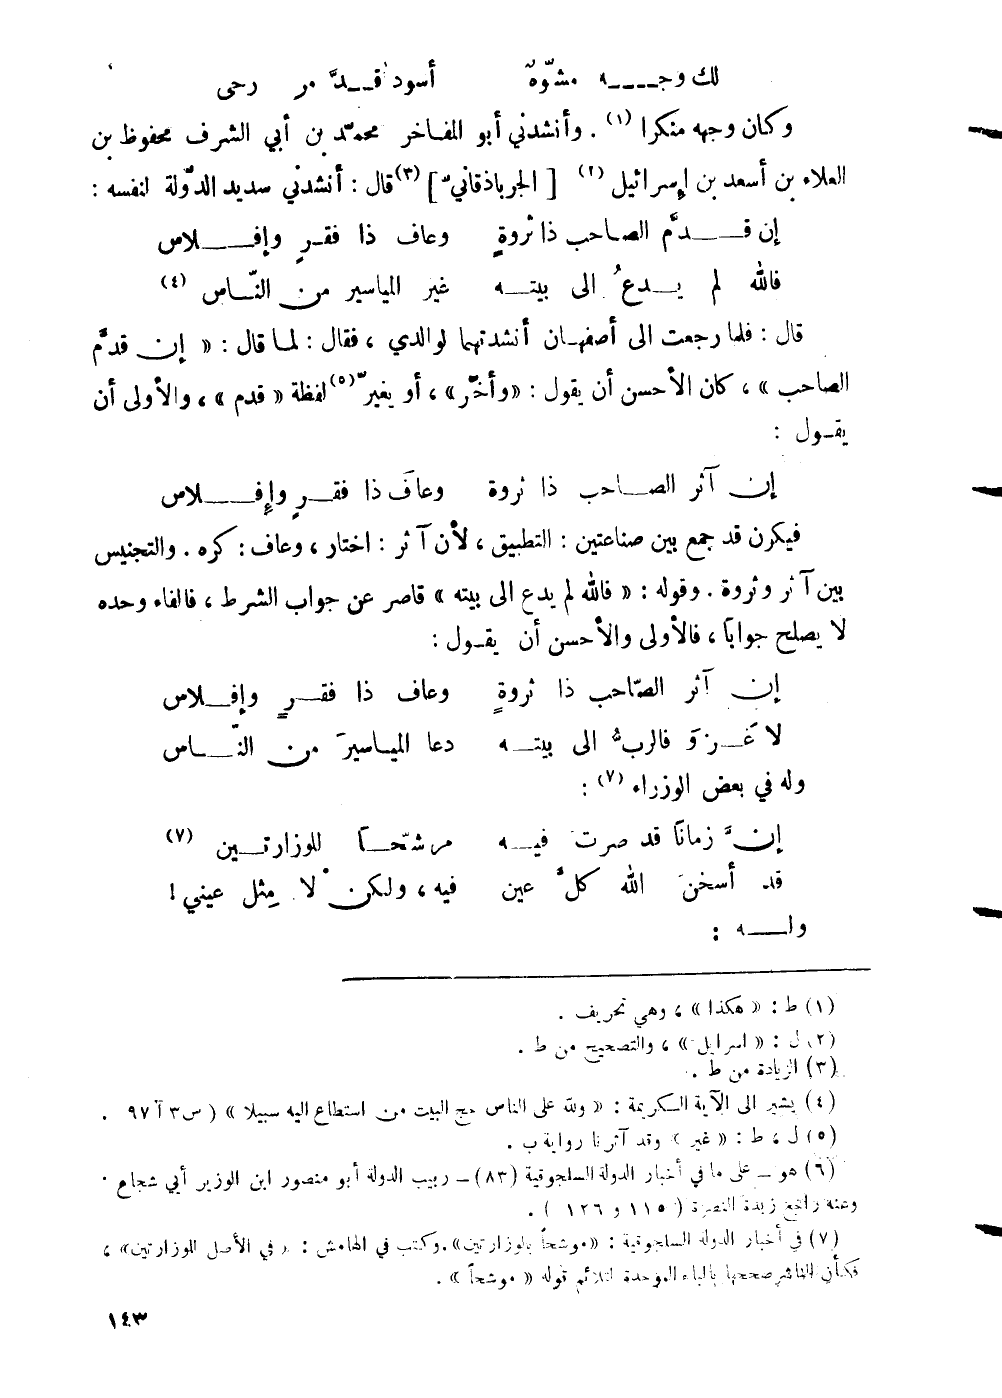 لك وجـــه مشوّهٌ أسود قـدَّ من رحى
وكان وجهه منكرا (١) . وأنشدني أبو المفاخر محمّد بن أبي الشرف محفوظ بن
العلاء بن أسعد بن إسرائيل (٢) [ الجرباذقانيّ ] (٣) قال : أنشدني سديد الدّولة لنفسه :
إن قـــدَّم الصاحب ذا ثروةٍ وعاف ذا فقـرٍ وإفـــلاس
فالله لم يـدعُ الى بيتـه غير المياسير من النّـاس (٤)
قال : فلما رجعت الى أصفهـان أنشدتهما لوالدي ، فقال : لمـا قال : « إن قدَّم
الصاحب » ، كان الأحسن أن يقول : «وأخّر» ، أو يغيرّ (٥) لفظة « قدم » ، والأولى أن
يقـول :
إن آثر الصـاحب ذا ثروة وعافَ ذا فقـرٍ وإفـــلاس
فيكرن قد جمع بين صناعتين : التطبيق ، لأن آثر : اختار ، وعاف : كره . والتجنيس
بين آثر وثروة . وقوله : « فالله لم يدع الى بيته » قاصر عن جواب الشرط ، فالفاء وحده
لا يصلح جواباً ، فالأولى والأحسن أن يقـول :
إن آثر الصّاحب ذا ثروةٍ وعاف ذا فقـرٍ وإفـلاس
لا غَـروَ فالربُّ الى بيتـه دعا الميـاسيرَ من النّـاس
وله في بعض الوزراء (٧) :
إنَّ زماناً قد صرتَ فيـه مرشّحـاً للوزارتـين (٧)
قد أسخنَ اللهُ كلَّ عين فيه ، ولكنْ لا مِثل عيني !
ولـــه :
(١) ط : « هكذا » ، وهي تحريف .
(٢) ل : « اسرايل » ، والتصحيح من ط .
(٣) الزيادة من ط .
(٤) يشير الى الآية الـكريمة : « ولله على الناس حج البيت من استطاع اليه سبيلا » ( س٣ آ ٩٧ .
(٥) ل ، ط : « غير » وقد آثرنا رواية ب .
(٦) هو ــ على ما في أخبار الدولة السلجوقية (٨٣) ــ ربيب الدولة أبو منصور ابن الوزير أبي شجاع .
وعنه راجع زبدة النصرة ( ١١٥ و ١٢٦ ) .
(٧) في أخبار الدولة السلجوقية : «موشحاً بالوزارتين» . وكتب في الهامش : « في الأصل للوزارتين» ،
فكأن الناشر صححها بالباء الموحدة لتلائم قوله « موشحاً » .
١٤٣